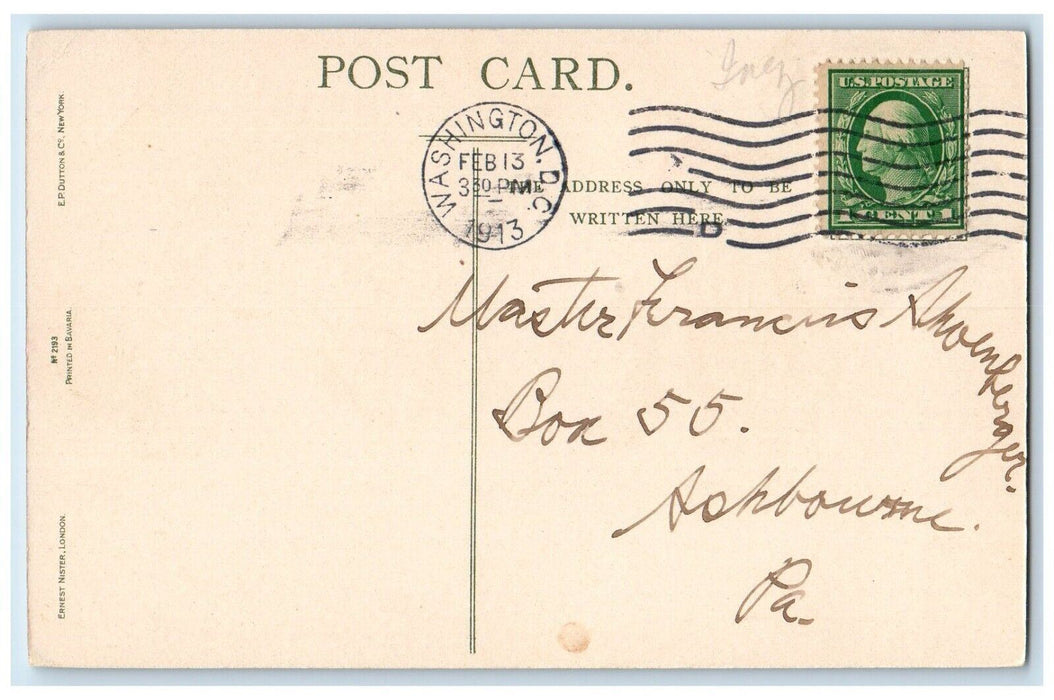 POST CARD.
Inez
U.S. POSTAGE
1 CENT 1
WASHINGTON, D.C.
FEB 13
3 30 PM
1913
THE ADDRESS ONLY TO BE
WRITTEN HERE.
D
Master Francis Shoenberger.
Box 55.
Ashbourne.
Pa.
E.P. DUTTON & CO, NEW YORK.
No 2193
PRINTED IN BAVARIA.
ERNEST NISTER, LONDON.